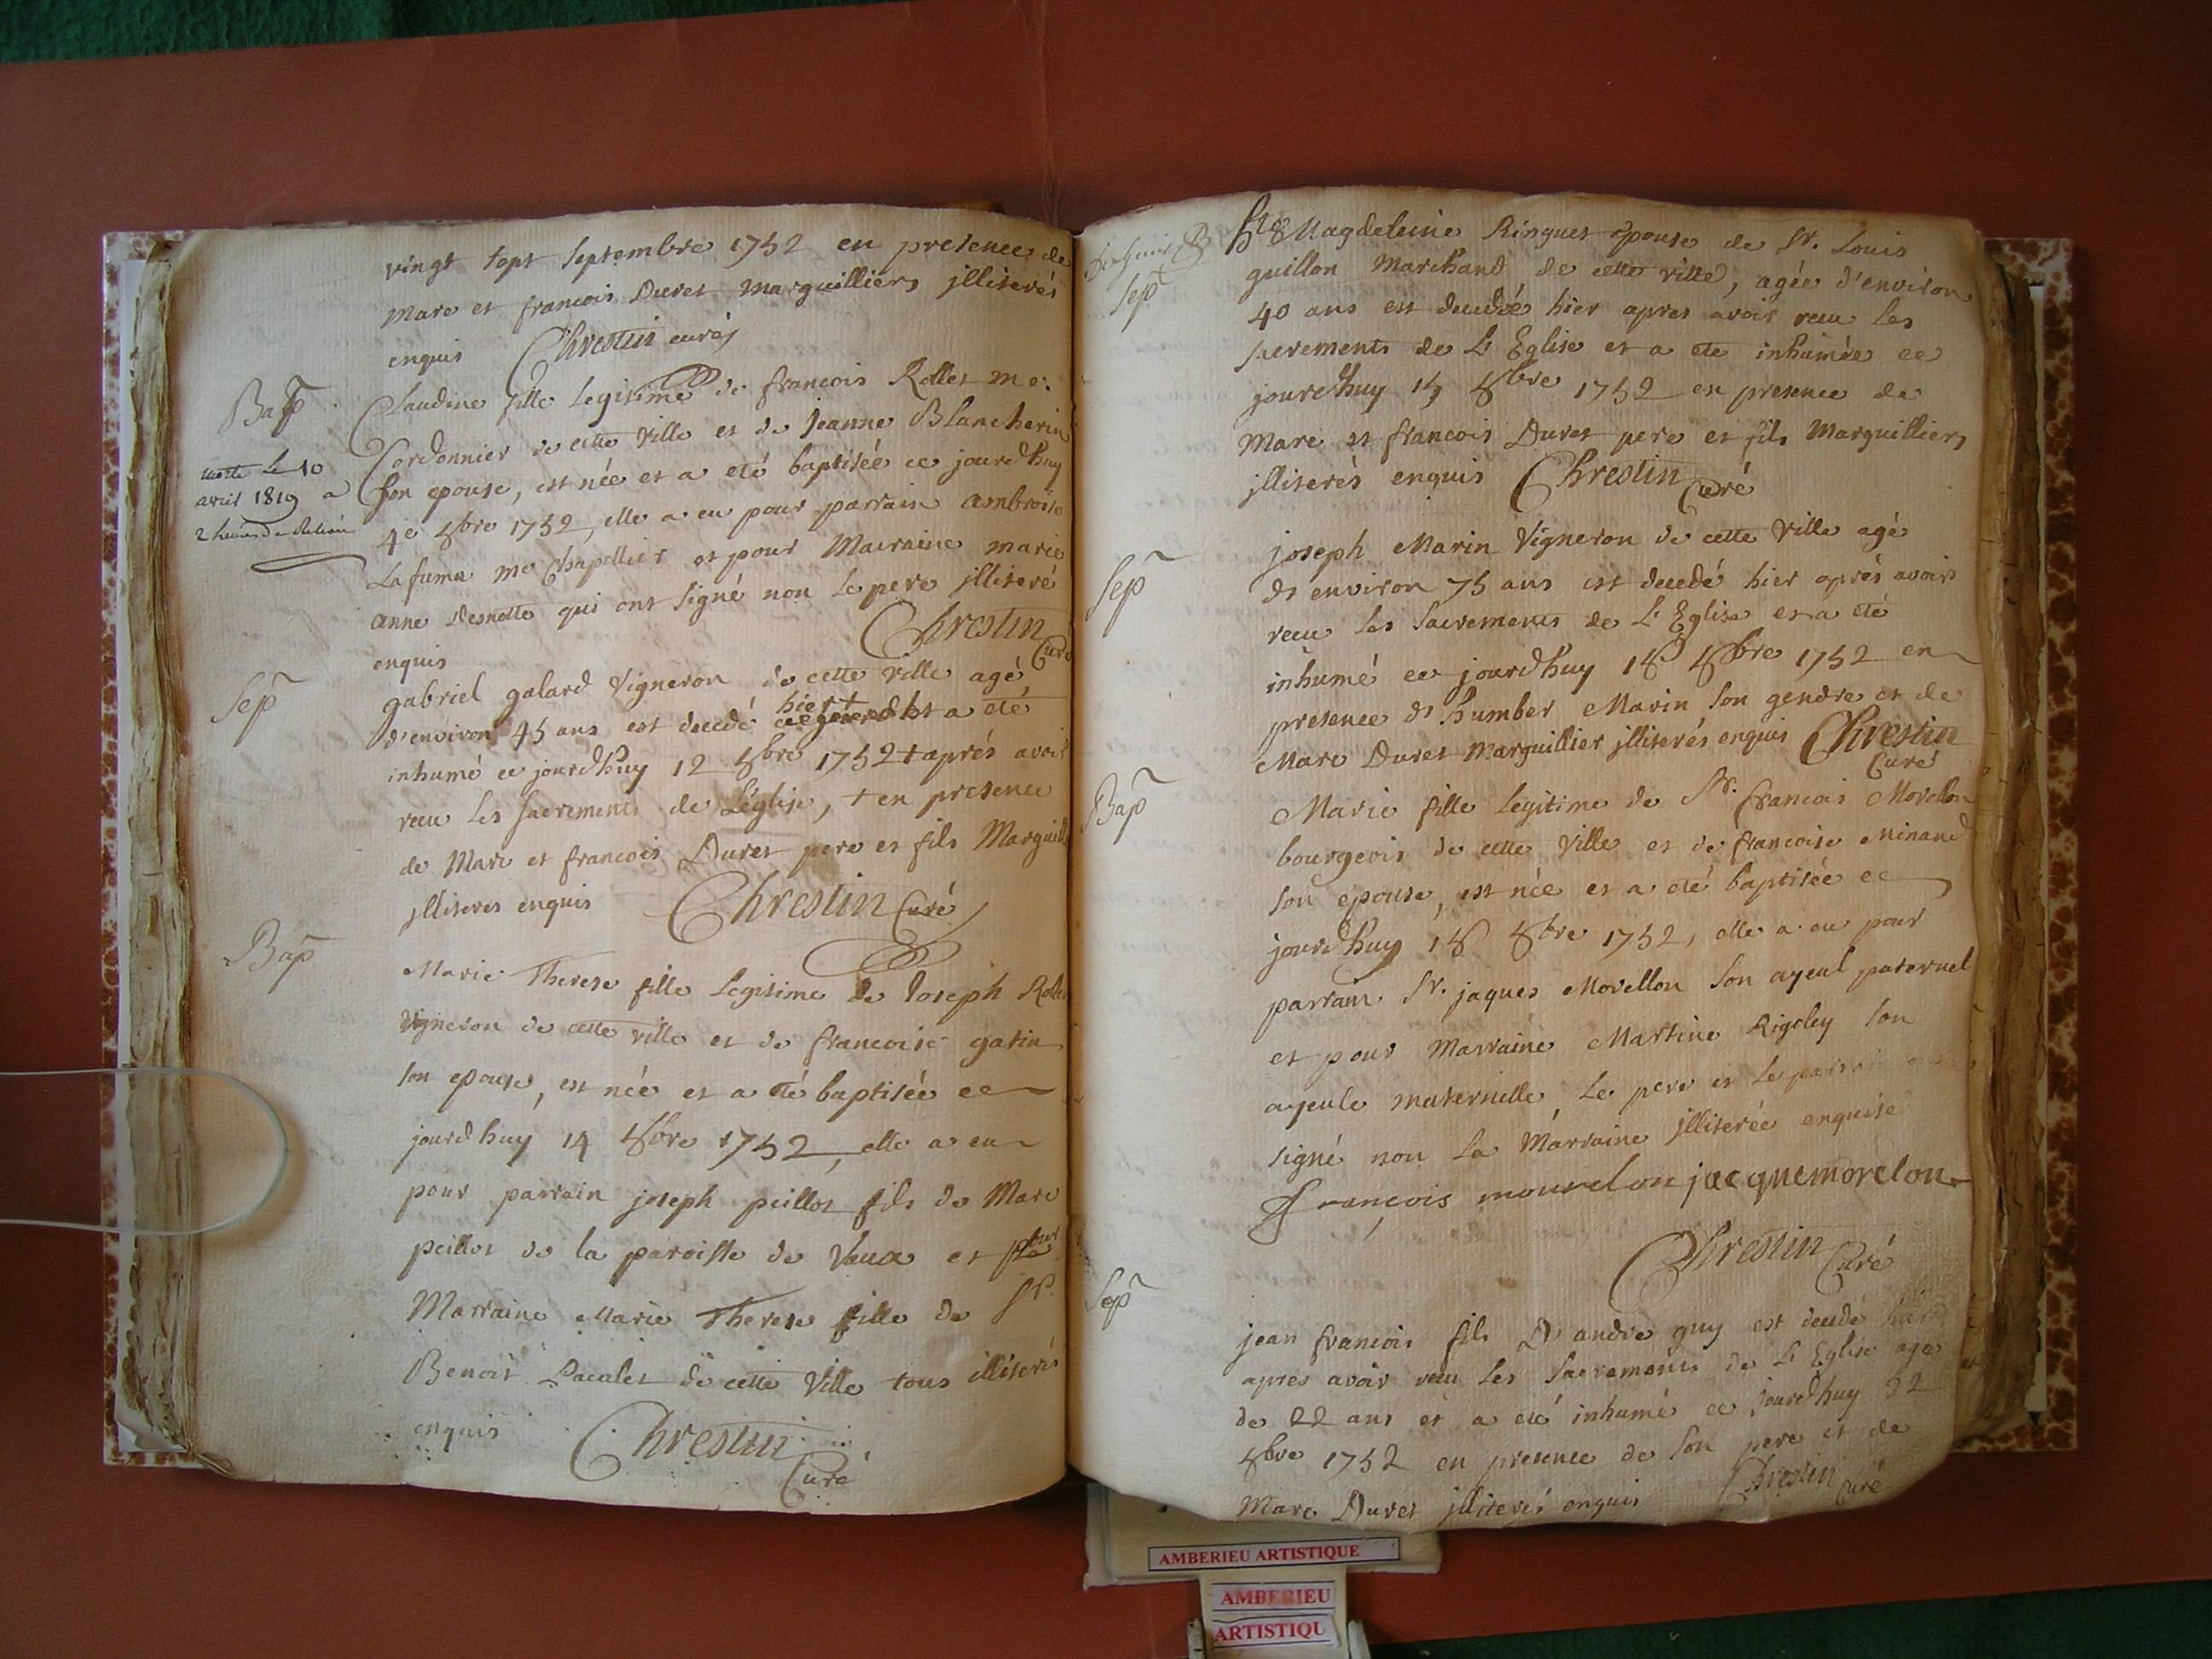 vingt sept septembre 1752 en presence de
Marc et francois Duret marguilliers jlliterés
enquis Chrestin curé
Bap
Claudine fille Legitime de francois Rollet me.
Cordonnier de cette Ville et de Jeanne Blancherin
son epouse, est née et a eté baptisée ce jourdhuy
morte Le 10
avril 1819 a
2 heures de
4e 8bre 1752, elle a eu pour parrain ambroise
La fuma me Chapellier et pour Marraine marie
anne Desnotte qui ont signé non le pere jlliteré
enquis Chrestin Curé
Sep
gabriel galard Vigneron de cette ville agé
d'environ 45 ans est decedé hier et a eté
inhumé ce jourdhuy 12 8bre 1752 + aprés avoir
recu les sacrements de L'église, + en presence
de Marc et francois Duret pere et fils Marguill
jlliteres enquis Chrestin Curé
Bap
Marie Therese fille Legitime de Joseph Rollet
Vigneron de cette ville et de francoise gatin
son epouse, est née et a eté baptisée ce
jourdhuy 14 8bre 1752, elle a eu
pour parrain joseph peillot fils de Marc
peillot de la paroisse de Vaux et pour
Marraine Marie Therese fille de Sr.
Benoit Pacalet de cette Ville tous illiterés
enquis Chrestin
Curé
Sep
Magdeleine Ringuet epouse de Sr. Louis
guillon Marchand de cette ville, agée d'environ
40 ans est decedée hier apres avoir recu les
sacrements de L'Eglise et a eté inhumée ce
jourdhuy 8bre 1752 en presence de
Marc et francois Duret pere et fils Marguilliers
jlliterés enquis Chrestin Curé
Sep
joseph Marin Vigneron de cette Ville agé
d'environ 75 ans est decedé hier aprés avoir
recu les Sacrements de L'Eglise et a eté
inhumé ce jourdhuy 18 8bre 1752 en
presence d'humber Marin son gendre et de
Marc Duret Marguillier jlliterés enquis Chrestin
Curé
Bap
Marie fille Legitime de Sr. francois Morellon
bourgeois de cette Ville et de francoise Minand
son epouse, est née et a eté baptisée ce
jourdhuy 18 8bre 1752, elle a eu pour
parrain Sr. jaques Morellon son ayeul paternel
et pour Marraine Martine Rigoley son
ayeule maternelle Le pere et le parrain ont
signé non la Marraine jlliterée enquise
francois mourelon jacquemorelon
Chrestin Curé
Sep
jean francois fils D'andre guy est decedé hier
apres avoir recu Les Sacrements de L'Eglise agé
de 22 ans et a eté inhumé ce jourdhuy 22
8bre 1752 en presence de son pere et de
Marc Duret jlliterés enquis Chrestin Curé
AMBERIEU ARTISTIQUE
AMBERIEU
ARTISTIQU